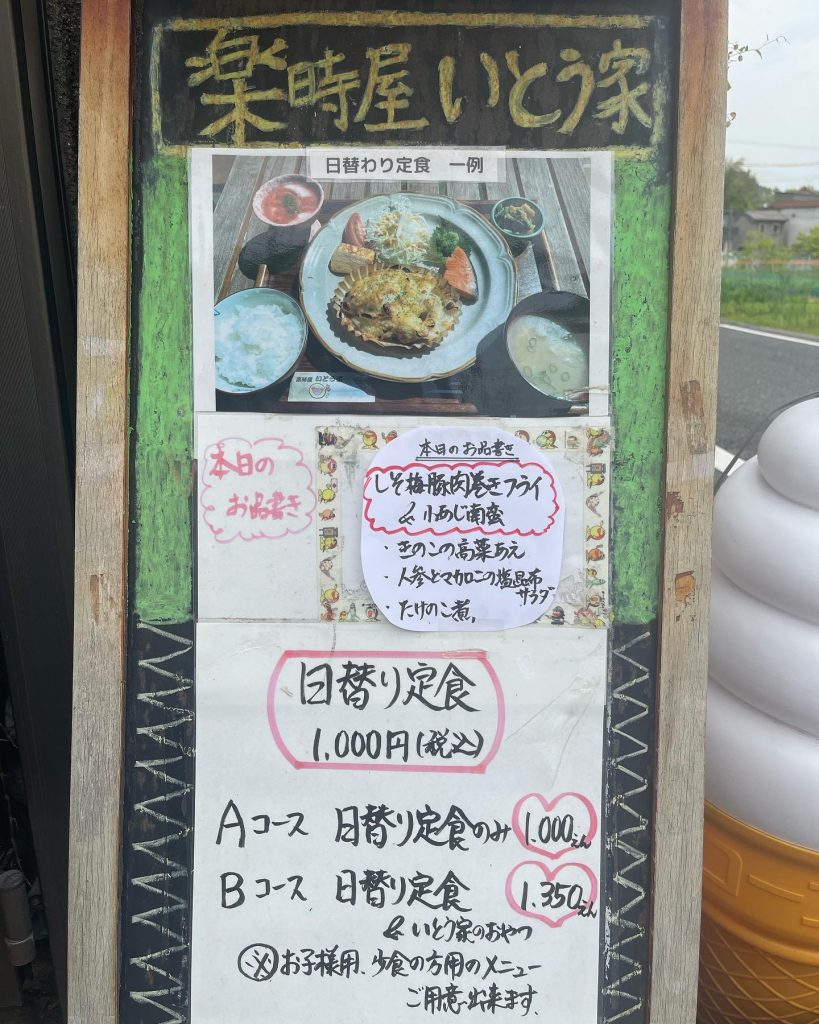 楽時屋 いとう家
日替わり定食 一例
楽時屋 いとう家
本日の
お品書き
本日のお品書き
しそ梅豚肉巻きフライ
& 小あじ南蛮
・きのこの高菜あえ
・人参とマカロニの塩昆布
サラダ
・たけのこ煮
日替り定食
1,000円(税込)
Aコース 日替り定食のみ 1,000えん
Bコース 日替り定食 1,350えん
& いとう家のおやつ
※お子様用、少食の方用のメニュー
ご用意出来ます。